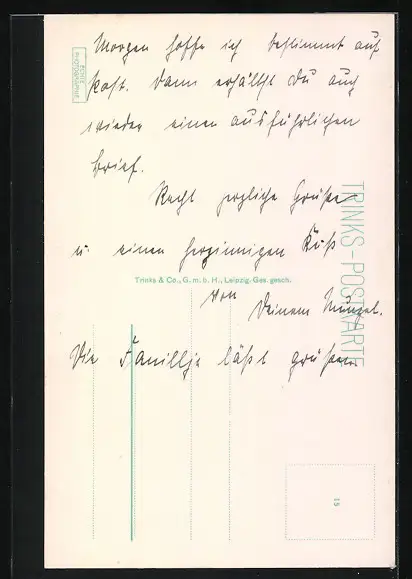 Morgen hoffe ich bestimmt auf
Post. Dann erhältst Du auch
wieder einen ausführlichen
Brief.
Recht herzliche Grüße
u. einen herzinnigen Kuß
Von
Deinem
Die Familie läßt grüßen.
Trinks & Co., G. m. b. H., Leipzig. Ges. gesch.
TRINKS-POSTKARTE
ECHTE PHOTOGRAPHIE